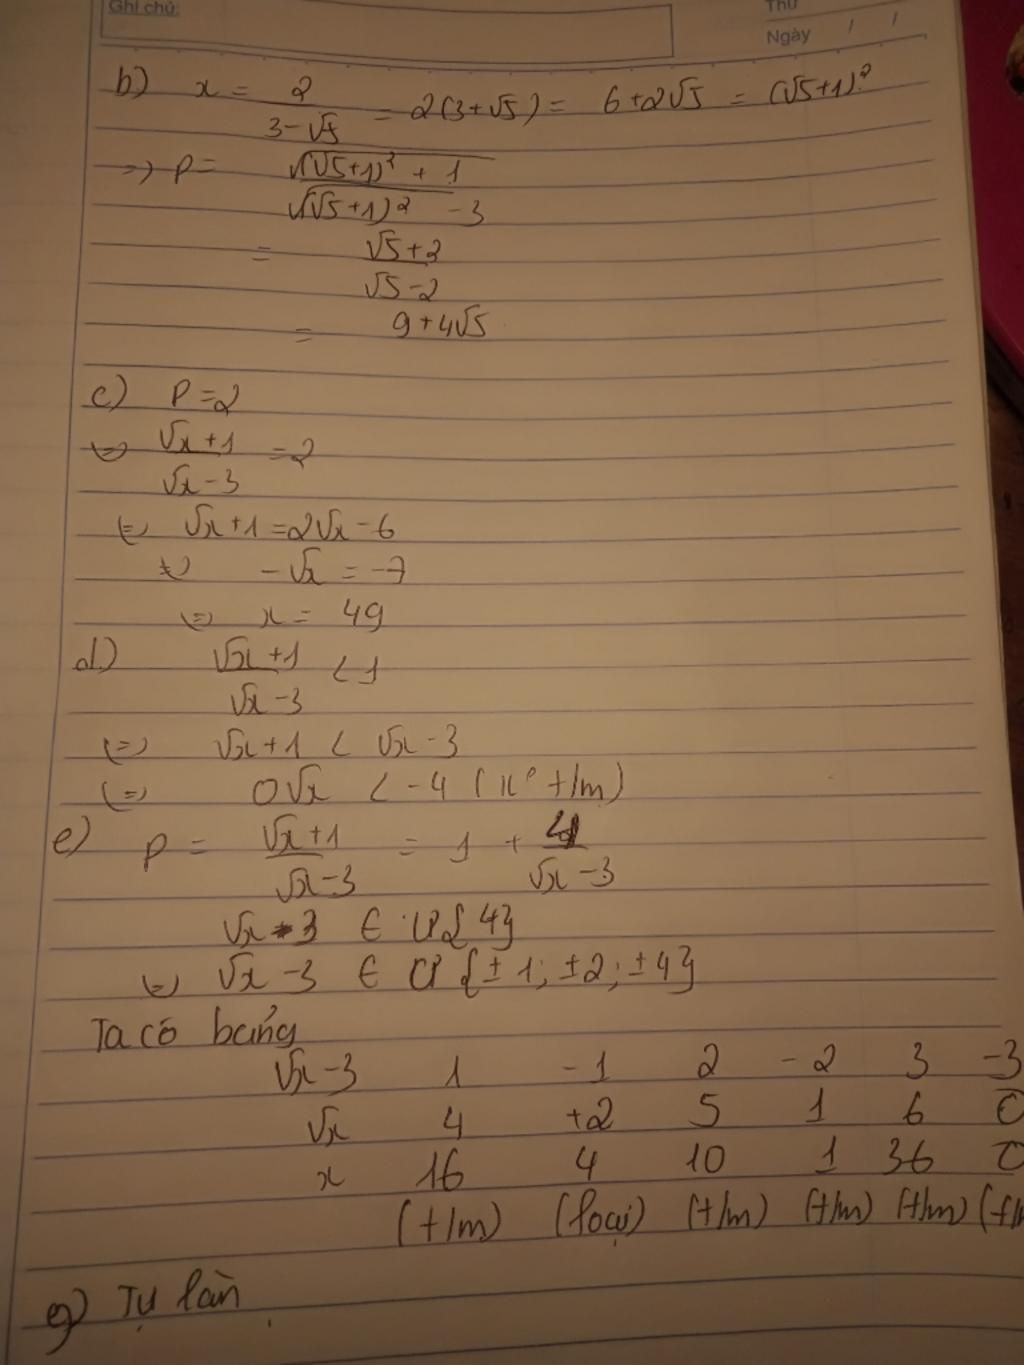 Ghi chú:
Thứ
Ngày / /
b) x = 2 / 3-√5 = 2(3+√5) = 6+2√5 = (√5+1)²
=> P = √(√5+1)² + 1 / √(√5+1)² - 3
= √5+2 / √5-2
= 9+4√5
c) P=2
<=> √x+1 / √x-3 = 2
<=> √x+1=2√x-6
<=> -√x = -7
<=> x = 49
d) √x+1 / √x-3 < 1
<=> √x+1 < √x-3
<=> 0√x < -4 (k° t/m)
e) P = √x+1 / √x-3 = 1 + 4 / √x-3
√x-3 ∈ Ư{4}
<=> √x-3 ∈ Ư {±1; ±2; ±4}
Ta có bảng
√x-3 1 -1 2 -2 3 -3
√x 4 +2 5 1 6 0
x 16 4 10 1 36 0
(t/m) (loại) (t/m) (t/m) (t/m) (t/m
g) Tự làm